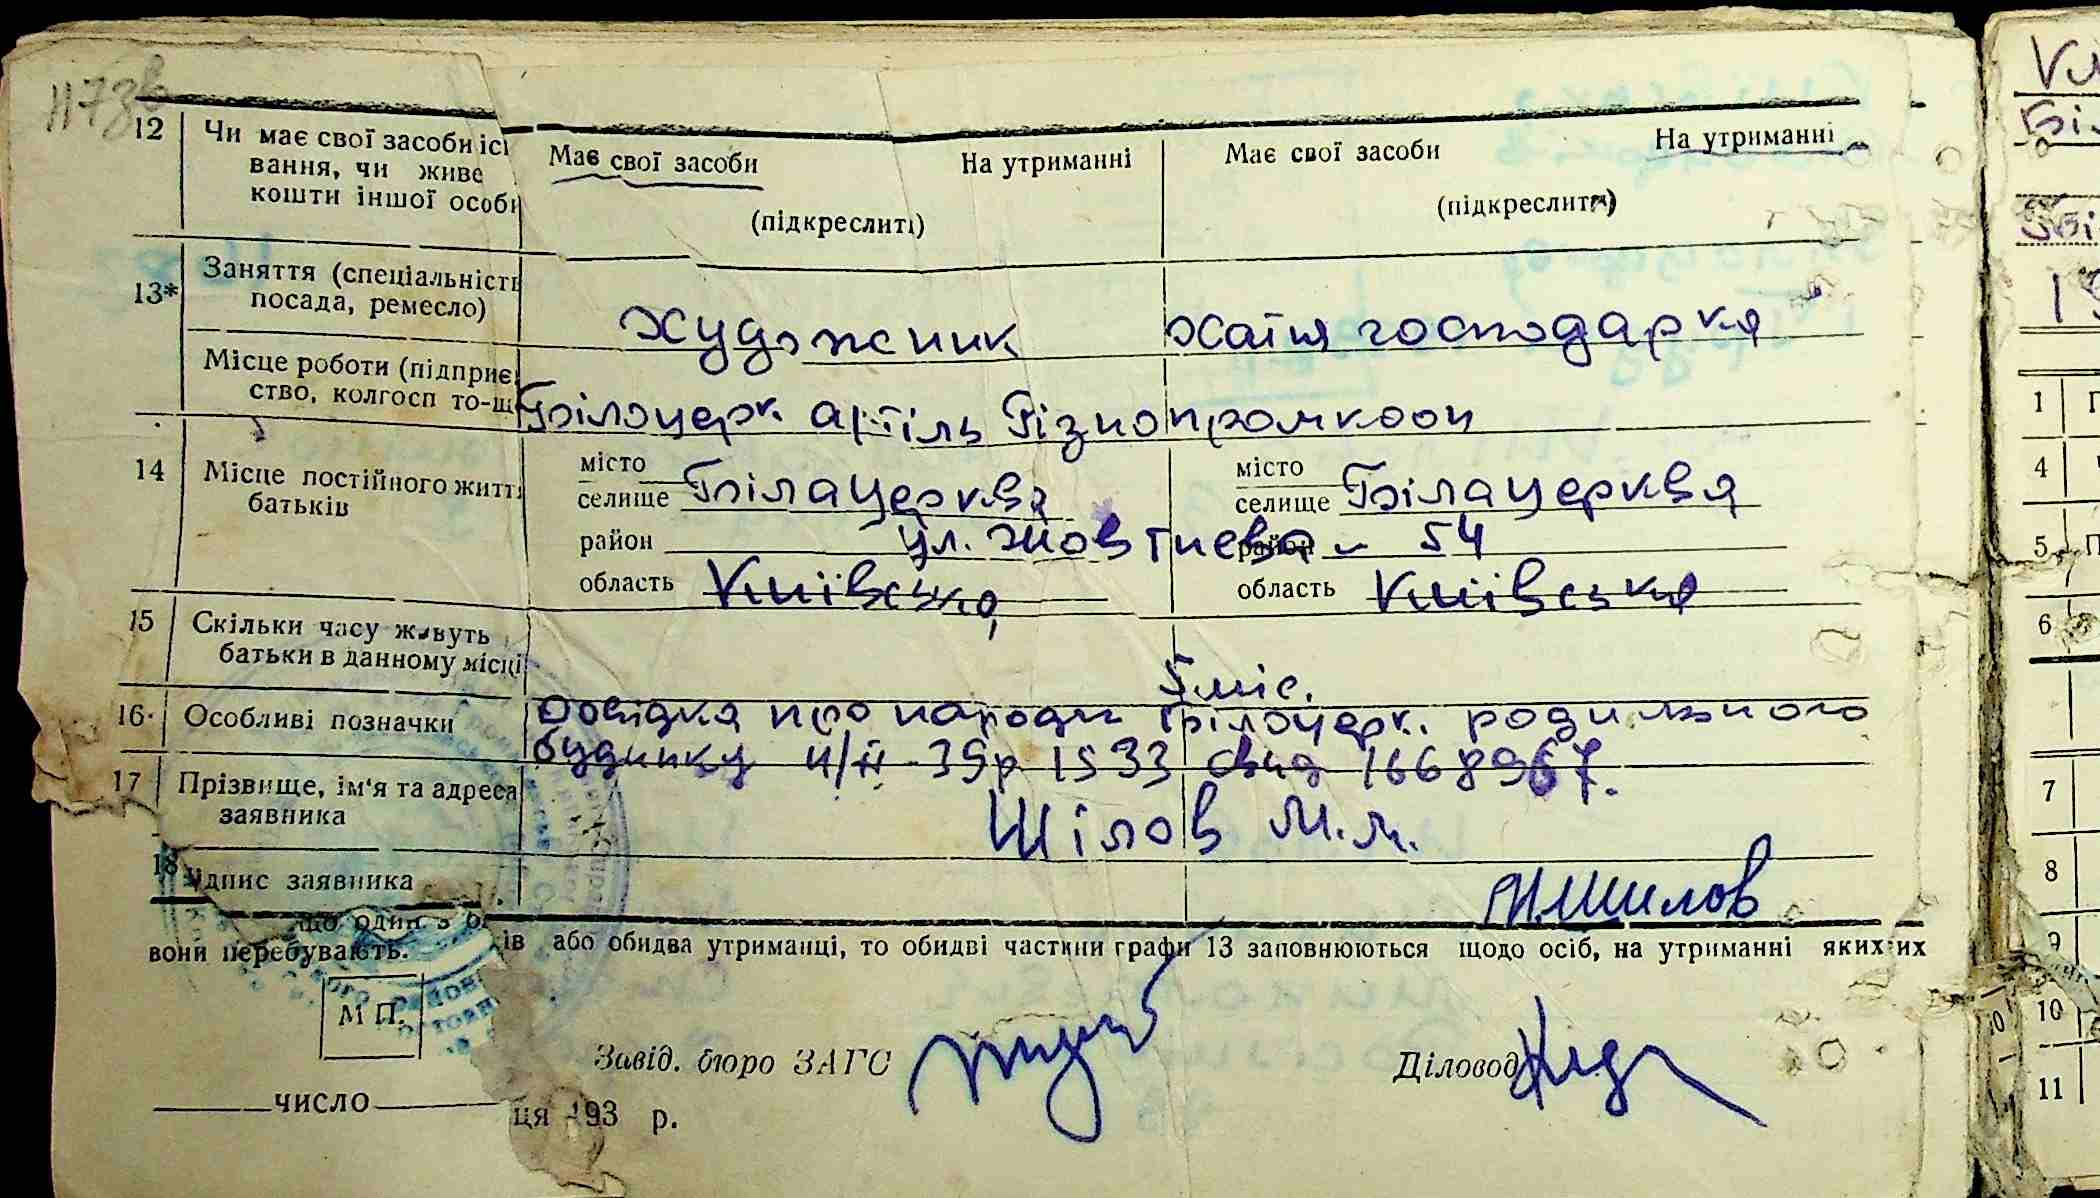 12 Чи має свої засоби ісі
вання, чи живе
кошти іншої особи
Має свої засоби На утриманні Має свої засоби На утриманні
(підкреслиті) (підкреслити)
13* Заняття (спеціальність
посада, ремесло)
художник хатня господарка
Місце роботи (підприє
ство, колгосп то-щ
Білоцерк. артіль Різнопромкооп
14 Місце постійного життя
батьків
місто місто
селище Біла Церква селище Біла Церква
район ул. Жовтнева - 54 район
область Київська область Київська
15 Скільки часу живуть
батьки в данному місці
5 міс.
16. Особливі позначки
Довідка про народж Білоцерк. родильного
будинку н/п 39р 1533 свид 1668967.
17 Прізвище, ім'я та адреса
заявника
Шілов М. М.
18 Підпис заявника
М.Шилов
що один з б ів або обидва утриманці, то обидві частини графи 13 заповнюються щодо осіб, на утриманні яких их
вони перебувають.
М П.
Завід. бюро ЗАГС Діловод
число ця 193 р.
1
4
5
6
7
8
9
10
11